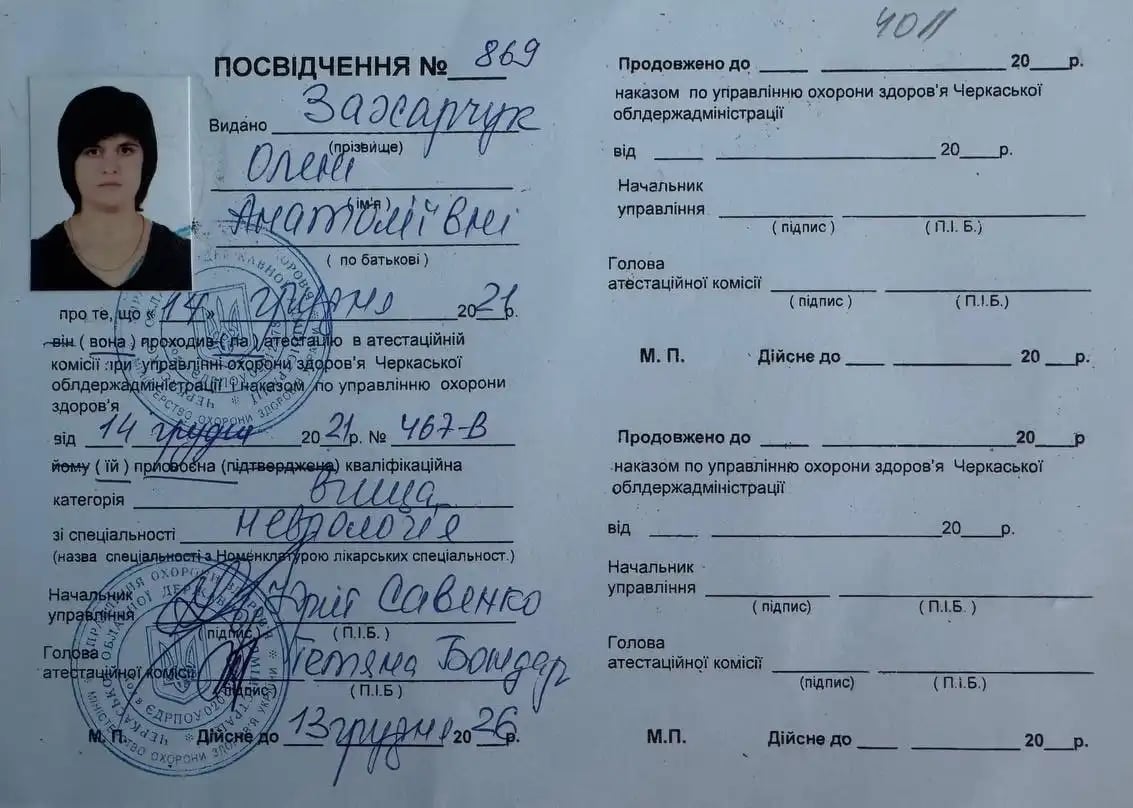 ПОСВІДЧЕННЯ № 869
Видано Захарчук
(прізвище)
Олені
( ім'я )
Анатоліївні
( по батькові )
про те, що « 14 » грудня 2021 р.
він ( вона ) проходив ( ла ) атестацію в атестаційній
комісії при управлінні охорони здоров'я Черкаської
облдержадміністрації і наказом по управлінню охорони
здоров'я
від 14 грудня 2021 р. № 467-В
йому ( їй ) присвоєна (підтверджена) кваліфікаційна
категорія вища
зі спеціальності неврологія
(назва спеціальності з Номенклатурою лікарських спеціальност.)
Начальник
управління Юрій Савенко
( підпис ) ( П.І.Б. )
Голова
атестаційної комісії Тетяна Бондар
підпис ( П.І.Б )
М. П. Дійсне до 13 грудня 2026 р.
40П
Продовжено до ____ ____ 20___р.
наказом по управлінню охорони здоров'я Черкаської
облдержадміністрації
від ____ ____ 20___р.
Начальник
управління ____ ____
( підпис ) ( П.І. Б.)
Голова
атестаційної комісії ____ ____
( підпис ) ( П.І.Б.)
М. П. Дійсне до ____ ____ 20 ___р.
Продовжено до ____ ____ 20___р
наказом по управлінню охорони здоров'я Черкаської
облдержадміністрації
від ____ ____ 20___р.
Начальник
управління ____ ____
( підпис) ( П.І.Б. )
Голова
атестаційної комісії ____ ____
(підпис) ( П.І.Б.)
М.П. Дійсне до ____ ____ 20___р.